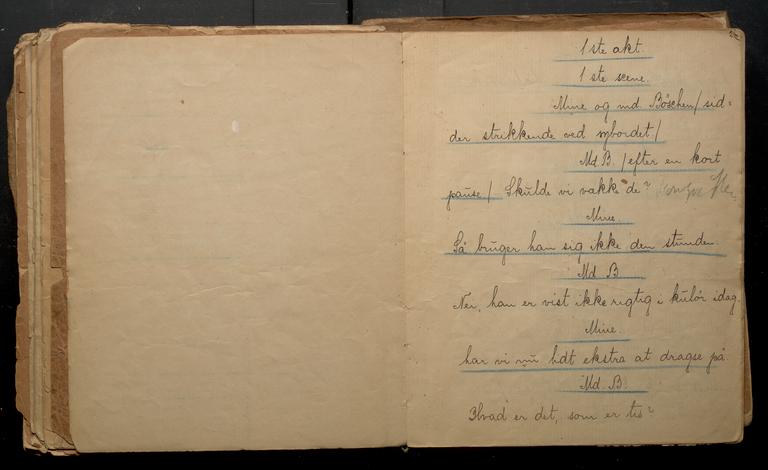 1 ste akt.
1 ste scene.
Mine og md. Böschen / sid=
der strikkende ved sybordet /
Md. B. / efter en kort
pause / Skulde vi vakke de?
Mine.
Så bruger han sig ikke den stunden.
Md. B
Nei, han er vist ikke rigtig i kulör idag.
Mine.
har vi nu lidt ekstra at dragse på.
Md. B.
Hvad er det, som er tis?